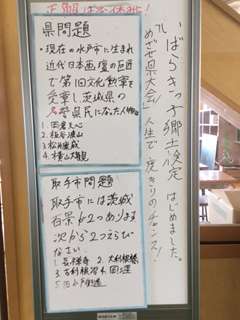 いばらきっ子郷土検定 はじめました。
めざせ県大会!人生で一度きりのチャンス!
県問題
・現在の水戸市に生まれ
近代日本画壇の巨匠
で第1回文化勲章を
受章し茨城県の
名誉県民になった人物は
1.岡倉天心
2.板谷波山
4.横山大観
取手市問題
取手市には茨城
百景が2つあります
次から2つえらび
なさい
1.長禅寺 2.大利根橋